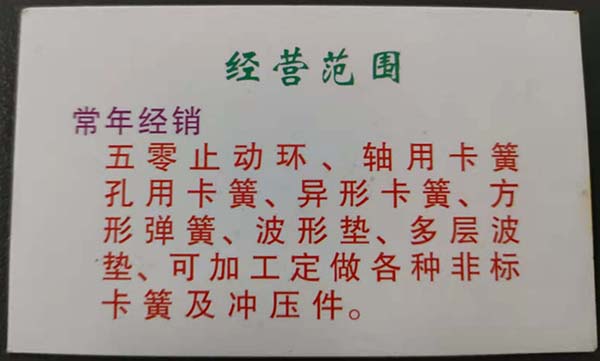 经营范围
常年经销
五零止动环、轴用卡簧
孔用卡簧、异形卡簧、方
形弹簧、波形垫、多层波
垫、可加工定做各种非标
卡簧及冲压件。